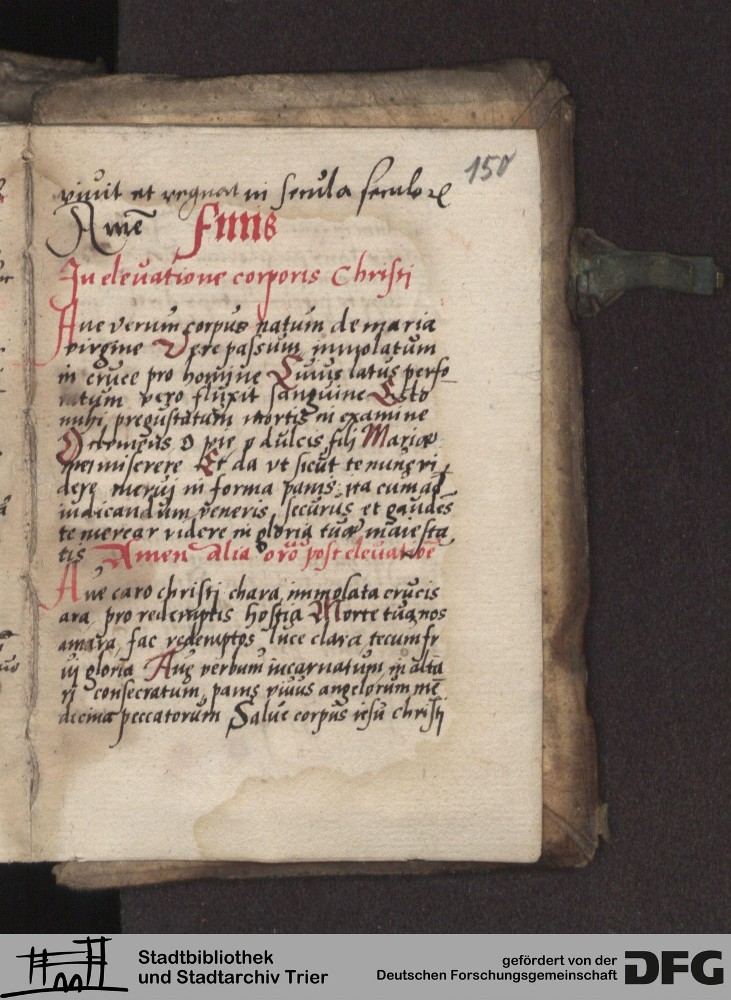 150
viuit et regnat in secula seculoꝝ
Amē Finis
In eleuatione corporis Christi
Aue verum corpus natum de maria
virgine Vere passum immolatum
in cruce pro homine Cuius latus perfo
ratum vero fluxit sanguine Esto
nuhi pregustatum mortis in examine
O clemens o pie o dulcis fili Mariæ
mei miserere Et da vt sicut te nunc vi
dere merui in forma panis ita cum ad
iudicandum veneris securus et gaudēs
te merear videre in gloria tuæ maiesta
tis Amen Alia oro post eleuatiōe
Aue caro christi chara immolata crucis
ara pro redemptis hostia Morte tua nos
amara fac redemptos luce clara tecum fr
ui gloria Aue verbum incarnatum in alta
ri consecratum panis viuus angelorum me
dicina peccatorum Salue corpus iesu christi
Stadtbibliothek
und Stadtarchiv Trier
gefördert von der
Deutschen Forschungsgemeinschaft
DFG